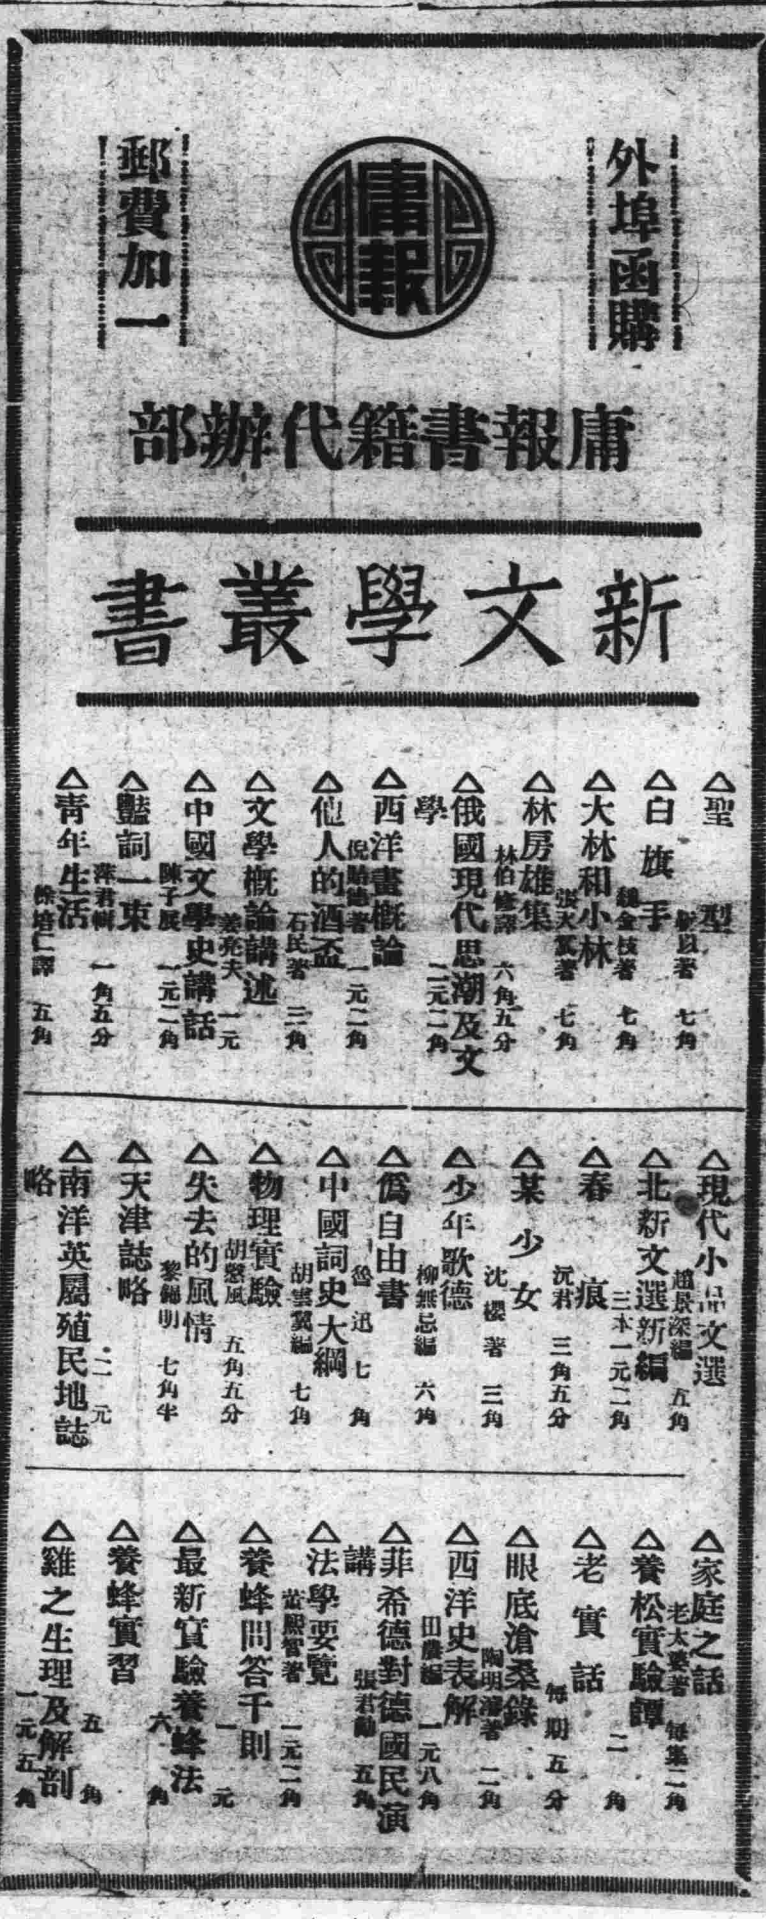 外埠函購
庸報
郵費加一
庸報書籍代辦部
新文學叢書
△聖型
靳以著　七角
△白旗手
魏金枝著　七角
△大林和小林
張天翼著　七角
△林房雄集
林伯修譯　六角五分
△俄國現代思潮及文學
二元二角
△西洋畫概論
倪貽德著　一元二角
△他人的酒盃
石民著　三角
△文學概論講述
姜亮夫　一元
△中國文學史講話
陳子展　一元二角
△豔詞一束
萍君輯　一角五分
△青年生活
徐培仁譯　五角
△現代小品文選
趙景深編　五角
△北新文選新編
三本一元二角
△春痕
沅君　三角五分
△某少女
沈櫻著　三角
△少年歌德
柳無忌編　六角
△僞自由書
魯迅　七角
△中國詞史大綱
胡雲翼編　七角
△物理實驗
胡慤風　五角五分
△失去的風情
黎錦明　七角半
△天津誌略
二元
△南洋英屬殖民地誌略
△家庭之話
老太婆著　每集二角
△養松實驗譚
二角
△老實話
每期五分
△眼底滄桑錄
陶明濬著　二角
△西洋史表解
田農編　一元八角
△菲希德對德國民演講
張君勱　五角
△法學要覽
董熙智著　一元二角
△養蜂問答千則
一元
△最新實驗養蜂法
六角
△養蜂實習
五角
△雞之生理及解剖
一元五角